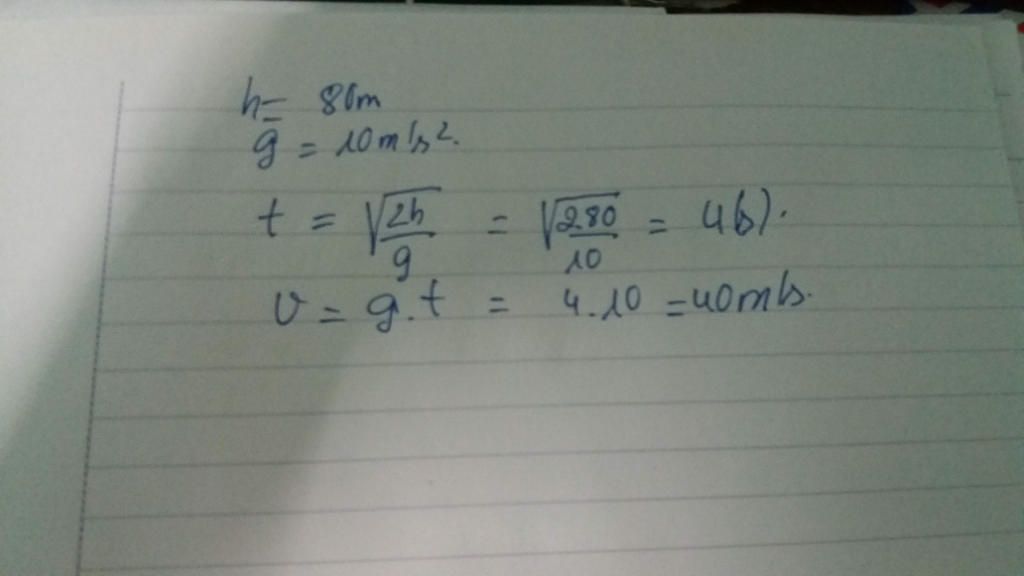 h = 80m
g = 10m/s².
t = √(2h/g) = √(2.80/10) = 4(s).
v = g.t = 4.10 = 40m/s.